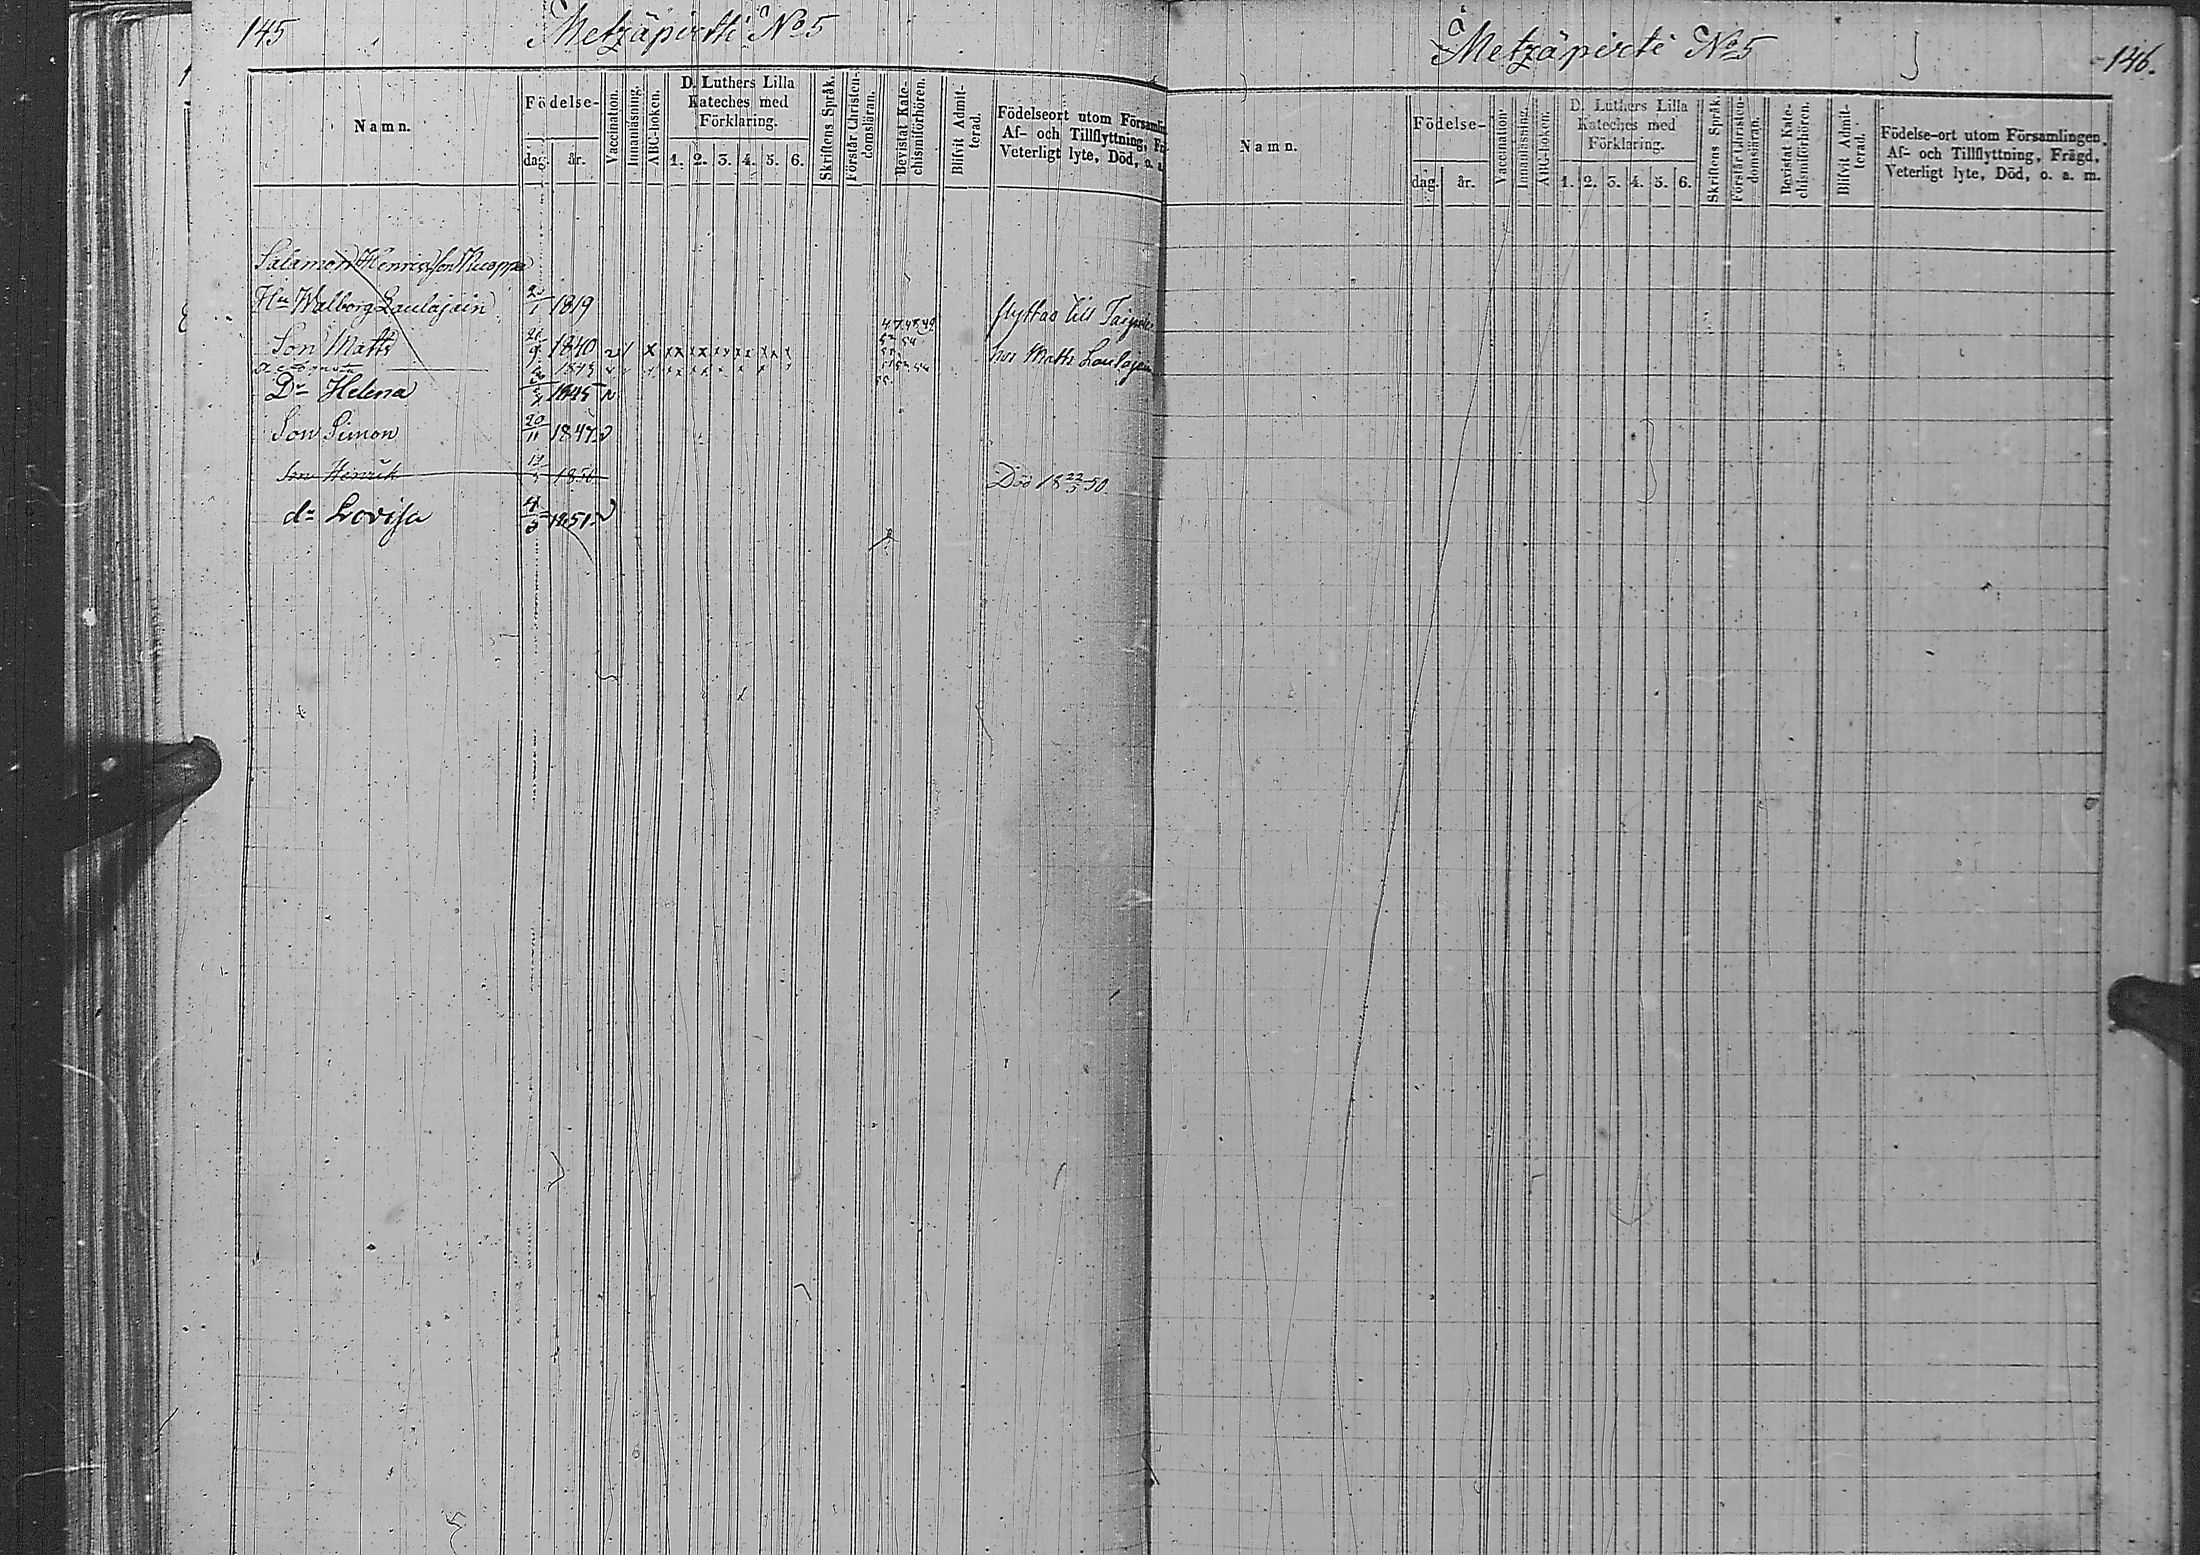 145
Metzäpirtti No 5
Namn.
Födelse-
dag.
år.
Vaccination.
Innanläsning.
ABC-boken.
D. Luthers Lilla
Kateches med
Förklaring.
1. 2. 3. 4. 5. 6.
Skriftens Språk.
Förstår Christen-
domsläran.
Bevistat Kate-
chismiförhören.
Blifvit Admit-
terad.
Födelseort utom Församlin
Af- och Tillflyttning,
Veterligt lyte, Död, o. a.
Salamon Henricsson
Hu Walborg Laulajain 20/1 1819 flyttad till
Son Matts 1840 hos Matts
1843
Dr Helena 1845
Son Simon 20/11 1847
Son Henrik 1850 Död 18 22/5 50.
dr Lovisa 1851
Metzäpirti No 5
146.
Namn.
Födelse-
dag.
år.
Vaccination.
Innanläsning.
ABC-boken.
D. Luthers Lilla
Kateches med
Förklaring.
1. 2. 3. 4. 5. 6.
Skriftens Språk.
Förstår Christen-
domsläran.
Bevistat Kate-
chismiförhören.
Blifvit Admit-
terad.
Födelse-ort utom Församlingen.
Af- och Tillflyttning, Frägd,
Veterligt lyte, Död, o. a. m.